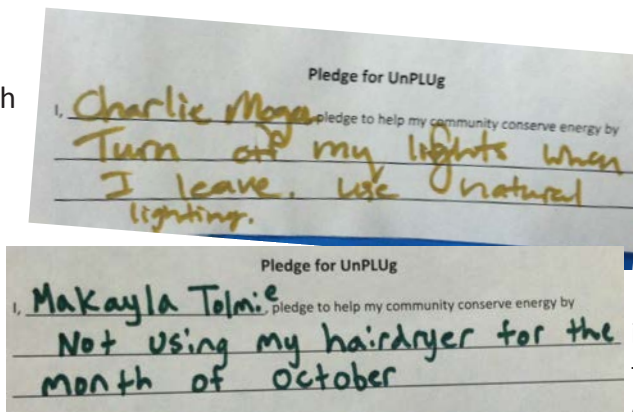 h
Pledge for UnPLUg
I, Charlie Moga pledge to help my community conserve energy by
Turn off my lights when
I leave. use natural
lighting.
Pledge for UnPLUg
I, Makayla Tolmie, pledge to help my community conserve energy by
Not using my hairdryer for the
month of october